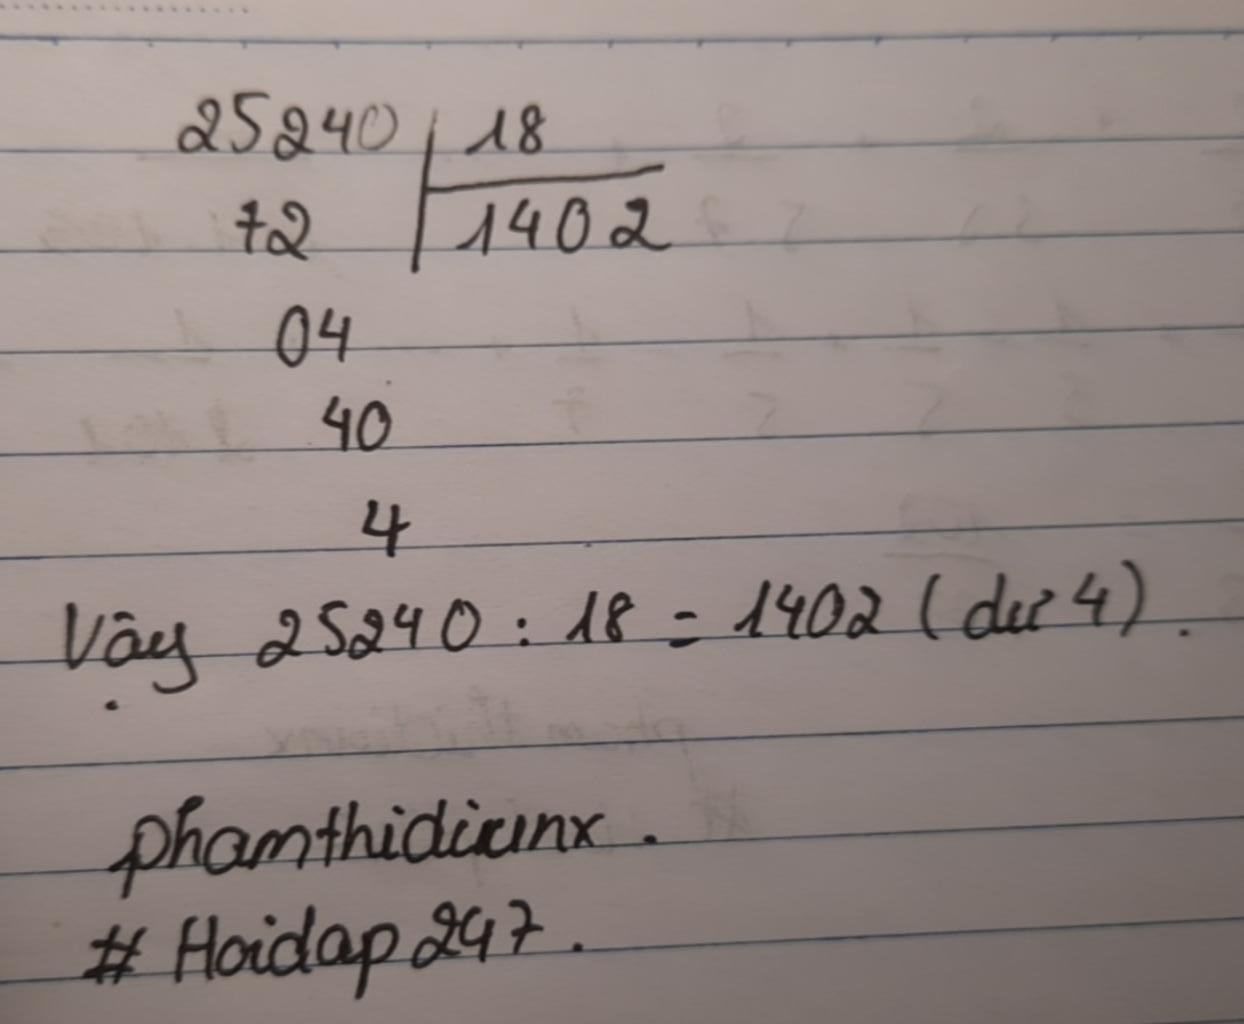 25240 18
72 1402
04
40
4
Vậy 25240 : 18 = 1402 (dư 4).
# Hoidap247.